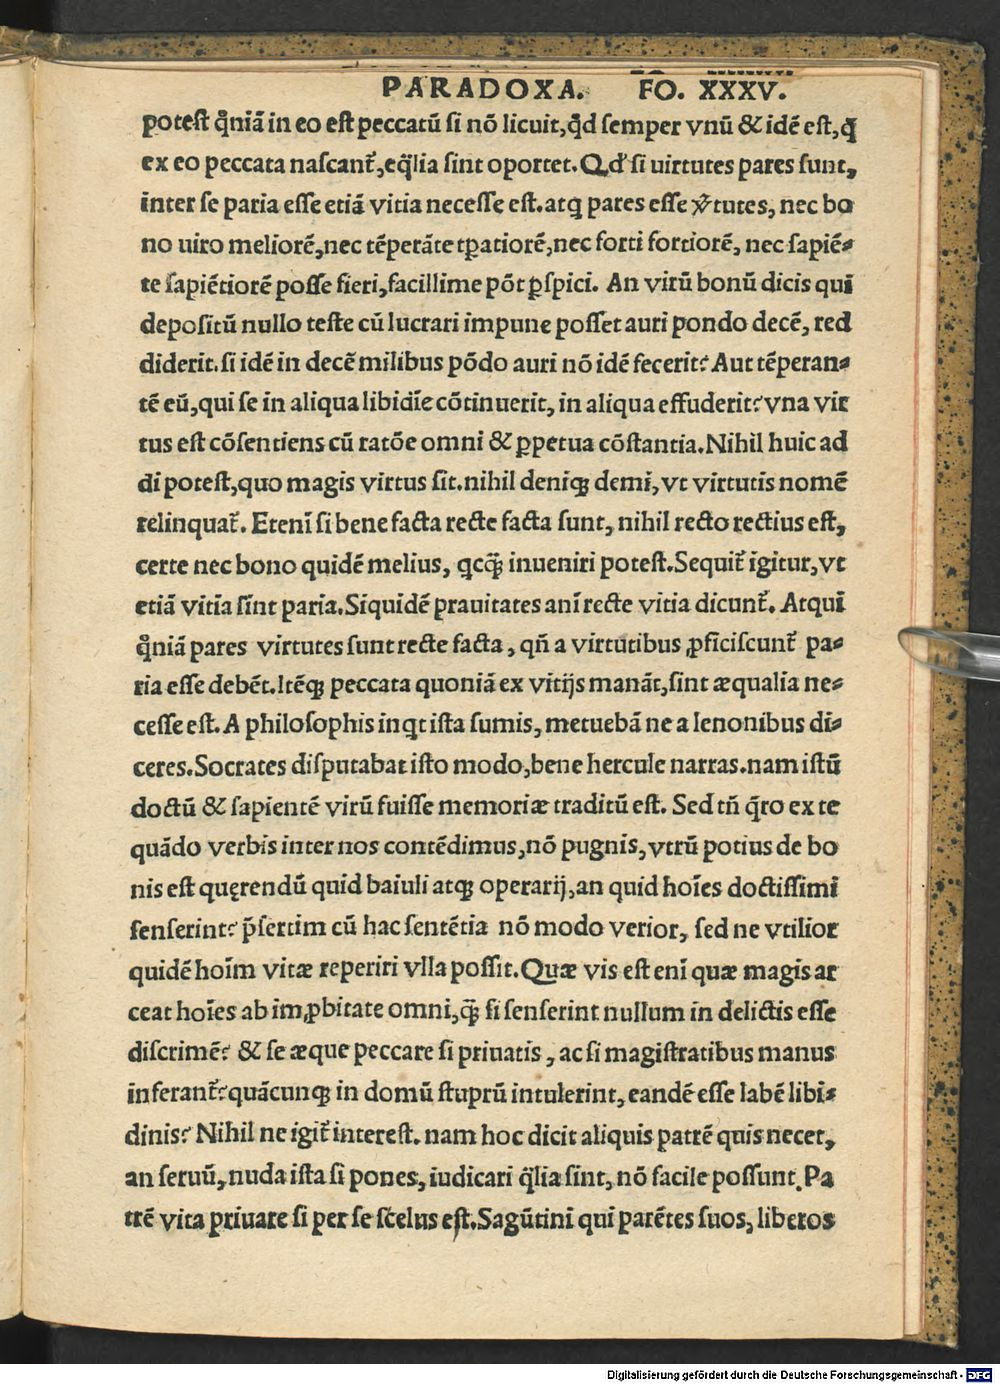 PARADOXA. FO. XXXV.
potest qm̄niā in eo est peccatū si nō licuit, qd̄ semper vnū & idē est, q̄
ex eo peccata nascant᷑, eq̄lia sint oportet. Qd̓ si uirtutes pares sunt,
inter se paria esse etiā vitia necesse est. atq; pares esse v̓tutes, nec bo
no uiro meliorē, nec tēperāte tꝑatiorē, nec forti fortiorē, nec sapiē⸗
te sapiētiorē posse fieri, facillime pōt ꝑspici. An virū bonū dicis qui
depositū nullo teste cū lucrari impune posset auri pondo decē, red
diderit. si idē in decē milibus pōdo auri nō idē fecerit? Aut tēperan⸗
tē eū, qui se in aliqua libidīe cōtinuerit, in aliqua effuderit? vna vir
tus est cōsentiens cū ratōe omni & ꝑpetua cōstantia. Nihil huic ad
di potest, quo magis virtus sit. nihil deniq; demi, vt virtutis nomē
relinquat᷑. Etenī si bene facta recte facta sunt, nihil recto rectius est,
certe nec bono quidē melius, qcq̄ȝ inueniri potest. Sequit᷑ igitur, vt
etiā vitia sint paria. Siquidē prauitates anī recte vitia dicunt᷑. Atqui
qm̄niā pares virtutes sunt recte facta, qn̄ a virtutibus ꝓficiscunt᷑ pa⸗
ria esse debēt. Itēq; peccata quoniā ex vitijs manāt, sint æqualia ne⸗
cesse est. A philosophis inqt ista sumis, metuebā ne a lenonibus di⸗
ceres. Socrates disputabat isto modo, bene hercule narras. nam istū
doctū & sapientē virū fuisse memoriæ traditū est. Sed tn̄ q̄ro ex te
quādo verbis inter nos contēdimus, nō pugnis, vtrū potius de bo
nis est quęrendū quid baiuli atq; operarij, an quid hoīes doctissimi
senserint? p̄sertim cū hac sentētia nō modo verior, sed ne vtilior
quidē hoīm vitæ reperiri vlla possit. Quæ vis est enī quæ magis ar
ceat hoīes ab imꝓbitate omni, q̄ȝ si senserint nullum in delictis esse
discrimē? & se æque peccare si priuatis, ac si magistratibus manus
inferant᷑? quācunq; in domū stuprū intulerint, eandē esse labē libi⸗
dinis? Nihil ne igit᷑ interest. nam hoc dicit aliquis patrē quis necet,
an seruū, nuda ista si pones, iudicari q̄lia sint, nō facile possunt. Pa
trē vita priuare si per se scelus est. Sagūtini qui parētes suos, liberos
Digitalisierung gefördert durch die Deutsche Forschungsgemeinschaft - DFG